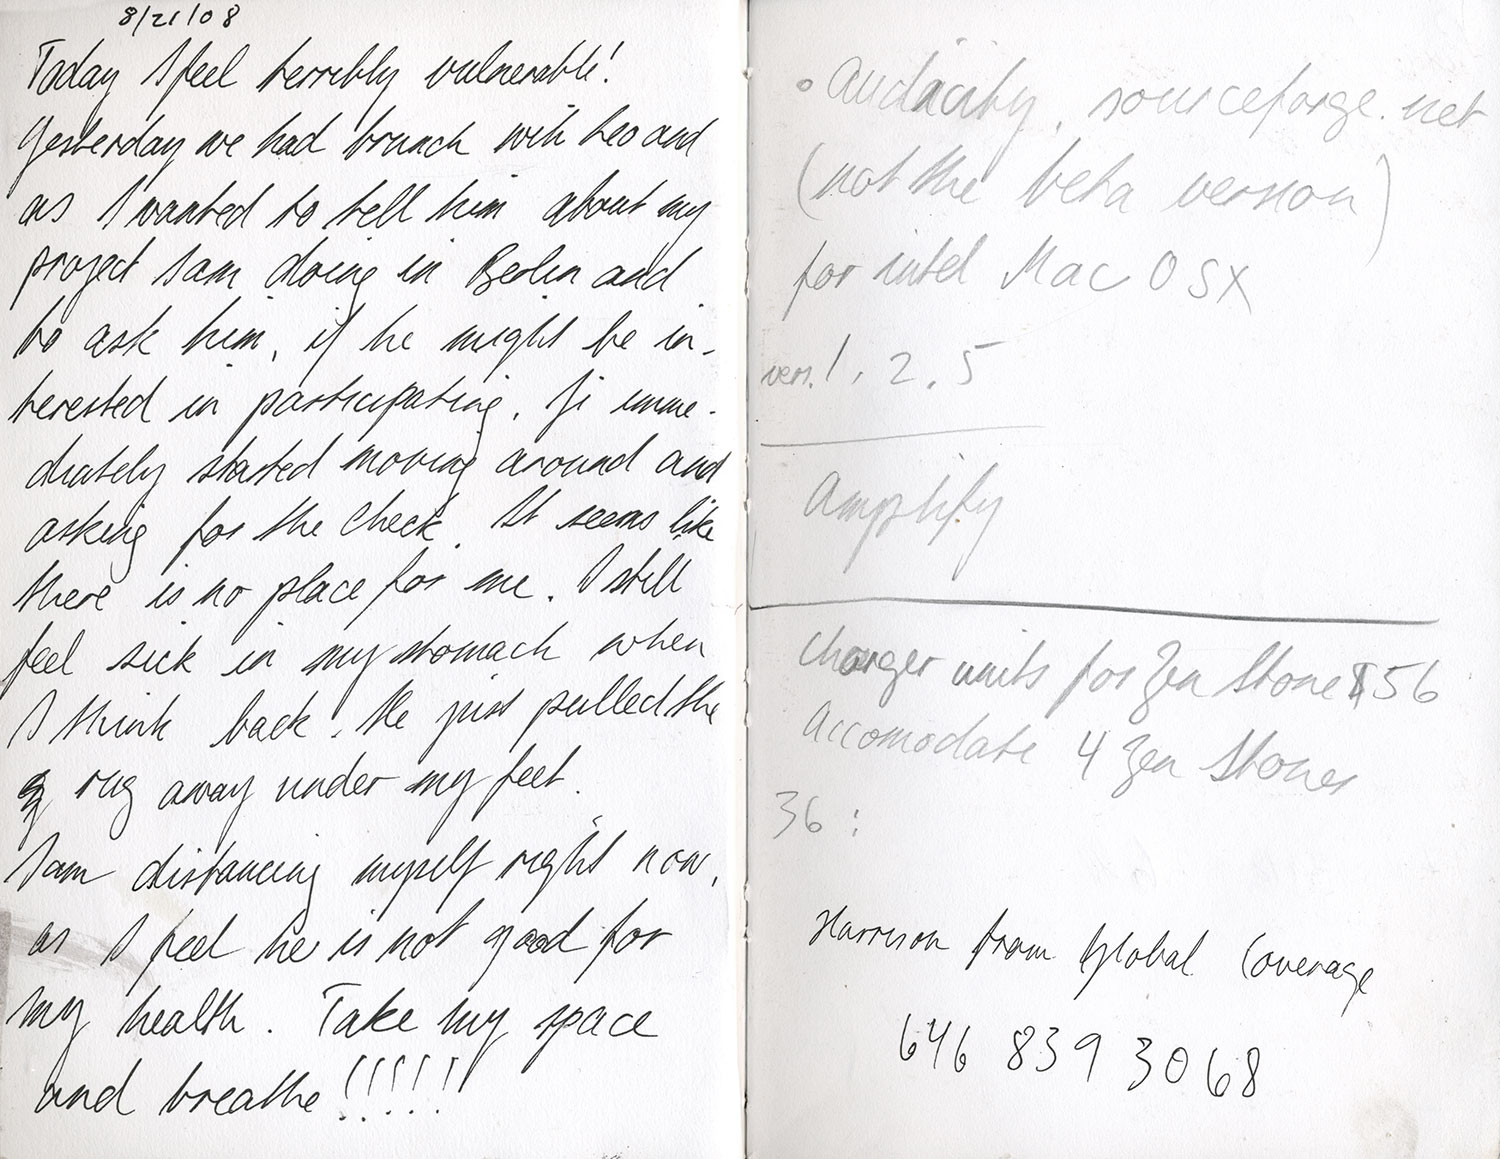 8/21/08
Today I feel terribly vulnerable!
Yesterday we had brunch with Leo and
as I wanted to tell him about my
project I am doing in Berlin and
to ask him, if he might be in-
terested in participating, Ji imme-
diately started moving around and
asking for the check. It seems like
there is no place for me. I still
feel sick in my stomach when
I think back. He just pulled the
rug away under my feet.
I am distancing myself right now,
as I feel he is not good for
my health. Take my space
and breathe!!!!!!
• Audacity, sourceforge.net
(not the beta version)
for intel Mac OSX
vers. 1, 2, 5
Amplify
Charger units for Zen Stone $56
Accomodate 4 Zen Stones
36:
Harrison from Global Coverage
646 839 3068